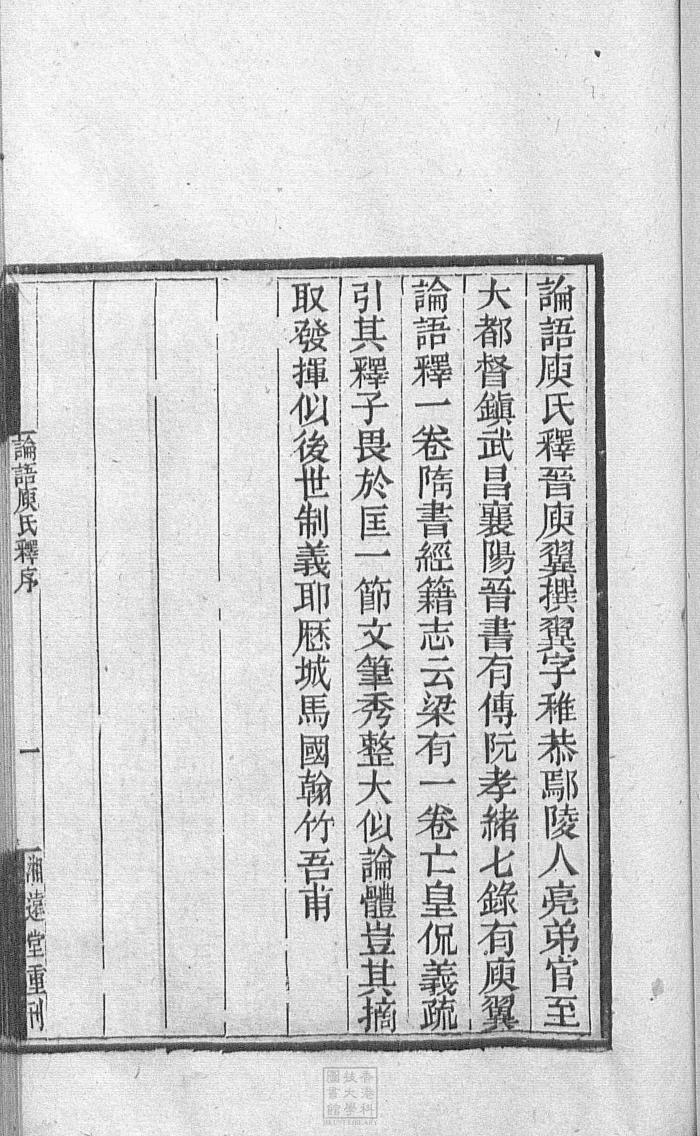 論語庾氏釋晉庾翼撰翼字稚恭鄢陵人亮弟官至
大都督鎮武昌襄陽晉書有傳阮孝緒七錄有庾翼
論語釋一卷隋書經籍志云梁有一卷亡皇侃義疏
引其釋子畏於匡一節文筆秀整大似論體豈其摘
取發揮似後世制義耶厯城馬國翰竹吾甫
論語庾氏釋序
一
湘遠堂重刊
香港科
技大學
圖書館
HKUST LIBRARY